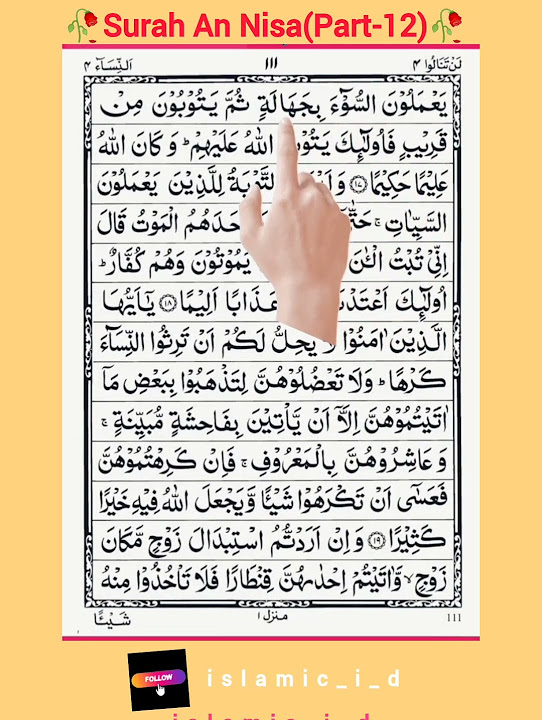 🥀Surah An Nisa(Part-12)🥀
لَنْ تَنَالُوا ٤ ١١١ اَلنِّسَآء ٤
يَعْمَلُوْنَ السُّوْٓءَ بِجَهَالَةٍ ثُمَّ يَتُوْبُوْنَ مِنْ
قَرِيْبٍ فَاُولٰٓئِكَ اللّٰهُ عَلَيْهِمْ ؕ وَ كَانَ اللّٰهُ
عَلِيْمًا حَكِيْمًا ۝١٧ لِلَّذِيْنَ يَعْمَلُوْنَ
السَّيِّاٰتِ ۚ الْمَوْتُ قَالَ
اِنِّيْ تُبْتُ الْـٰٔنَ يَمُوْتُوْنَ وَهُمْ كُفَّارٌ ؕ
اُولٰٓئِكَ عَذَابًا اَلِيْمًا ۝١٨ يٰۤاَيُّهَا
الَّذِيْنَ اٰمَنُوْا لَا يَحِلُّ لَكُمْ اَنْ تَرِثُوا النِّسَآءَ
كَرْهًا ؕ وَلَا تَعْضُلُوْهُنَّ لِتَذْهَبُوْا بِبَعْضِ مَاۤ
اٰتَيْتُمُوْهُنَّ اِلَّاۤ اَنْ يَّاْتِيْنَ بِفَاحِشَةٍ مُّبَيِّنَةٍ ۚ
وَ عَاشِرُوْهُنَّ بِالْمَعْرُوْفِ ۚ فَاِنْ كَرِهْتُمُوْهُنَّ
فَعَسٰۤى اَنْ تَكْرَهُوْا شَيْـًٔا وَّيَجْعَلَ اللّٰهُ فِيْهِ خَيْرًا
كَثِيْرًا ۝١٩ وَاِنْ اَرَدْتُّمُ اسْتِبْدَالَ زَوْجٍ مَّكَانَ
زَوْجٍ ۙ وَّاٰتَيْتُمْ اِحْدٰىهُنَّ قِنْطَارًا فَلَا تَاْخُذُوْا مِنْهُ
شَيْـًٔا منزل ١ 111
FOLLOW islamic_i_d
islamic_i_d